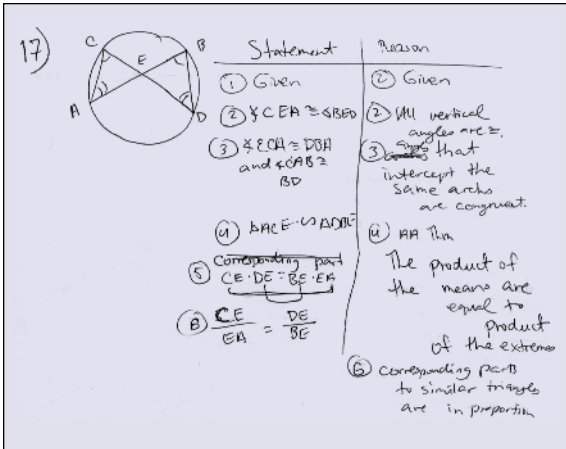 17)
C
B
E
A
D
Statement Reason
① Given ① Given
② ∢CEA ≅ ∢BED ② All vertical
angles are ≅.
③ ∢ECA ≅ DBA ③ Angles that
and ∢CAB ≅ intercept the
BD same archs
are congruent.
④ △ACE ∽ △DBE ④ AA Thm
Corresponding part
⑤ CE · DE = BE · EA The product of
the means are
equal to
product
of the extremes
⑥ CE/EA = DE/BE
⑥ corresponding parts
to similar triangles
are in proportion